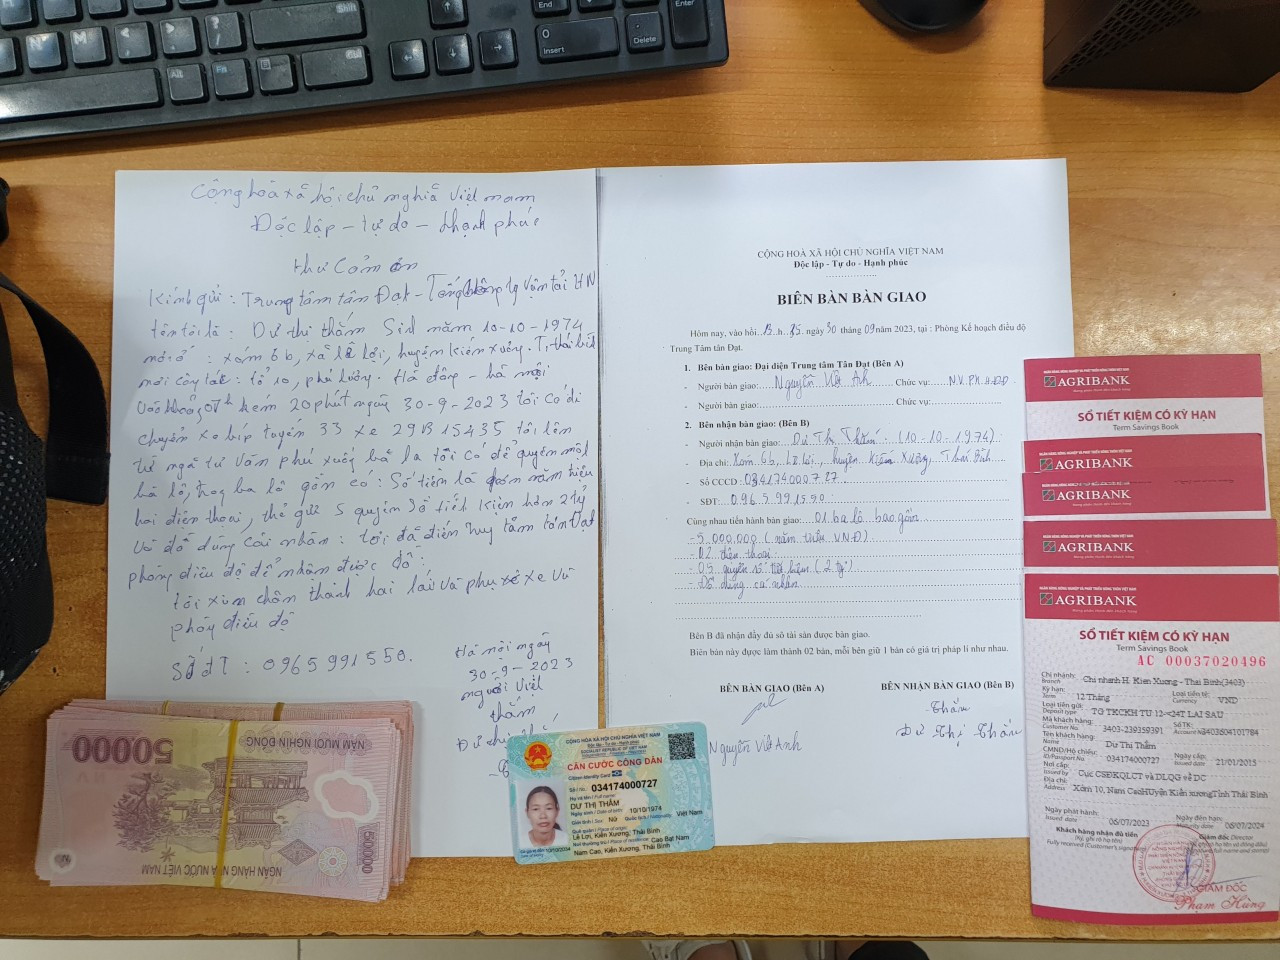 Cộng hoà xã hội chủ nghĩa Việt nam
Độc lập - tự do - hạnh phúc
thư Cảm ơn
Kính gửi : Trung tâm tân Đạt - Tổng công ty vận tải HN
tên tôi là : Dư thị thắm Sinh năm 10-10-1974
nơi ở : xóm 6b, xã lê lợi, huyện kiến xương. T. thái bình
nơi công tác : tổ 10, phú lương. Hà đông - hà nội
vào khoảng 07h kém 20 phút ngày 30-9-2023 tôi có đi
chuyến xe bíp tuyến 33 xe 29B 15435 tôi lên
từ ngã tư Văn phú xuống ba la tôi có để quyên một
ba lô, trong ba lô gồm có : Số tiền là năm triệu
hai điện thoại, thẻ gửi 5 quyển sổ tiết kiện hơn 2 tỷ
và đồ dùng cái nhân : tôi đã điến trung tâm tân Đạt
phòng điều độ để nhậm được đồ
tôi xin chân thành hai lái và phụ xế xe và
phòng điều độ
Số đt : 0965991550.
Hà nội ngày
30-9-2023
người viết
thắm
CỘNG HOÀ XÃ HỘI CHỦ NGHĨA VIỆT NAM
Độc lập - Tự do - Hạnh phúc
BIÊN BẢN BÀN GIAO
Hôm nay, vào hồi 13 h 25 ngày 30 tháng 09 năm 2023, tại : Phòng Kế hoạch điều độ
Trung Tâm tân Đạt.
1. Bên bàn giao: Đại diện Trung tâm Tân Đạt (Bên A)
- Người bàn giao: Nguyễn Việt Anh Chức vụ: N.V. P. K.H.Đ.Đ
- Người bàn giao: Chức vụ:
2. Bên nhận bàn giao: (Bên B)
- Người nhận bàn giao: Dư Thị Thắm (10-10-1974)
- Địa chỉ: Xóm 6b, Lê Lợi, huyện Kiến Xương, Thái Bình
- Số CCCD : 034174000727
- SĐT: 0965.991550
Cùng nhau tiến hành bàn giao: 01 ba lô bao gồm
- 5.000.000 (năm triệu VNĐ)
- 02 điện thoại
- 05 quyển sổ tiết kiệm (2 tỷ)
- Đồ dùng cá nhân
Bên B đã nhận đầy đủ số tài sản được bàn giao.
Biên bản này được làm thành 02 bản, mỗi bên giữ 1 bản có giá trị pháp lí như nhau.
BÊN BÀN GIAO (Bên A) BÊN NHẬN BÀN GIAO (Bên B)
Thắm
Nguyễn Việt Anh Dư Thị Thắm
AGRIBANK
SỔ TIẾT KIỆM CÓ KỲ HẠN
Term Savings Book
AGRIBANK
AGRIBANK
AGRIBANK
NGÂN HÀNG NÔNG NGHIỆP VÀ PHÁT TRIỂN NÔNG THÔN VIỆT NAM
AGRIBANK
Mang phồn thịnh đến khách hàng
SỔ TIẾT KIỆM CÓ KỲ HẠN
Term Savings Book
AC 00037020496
Chi nhánh: Chi nhánh H. Kiến Xương - Thái Bình(3403)
Branch
Kỳ hạn: 12 Tháng Loại tiền tệ: VND
Term Currency
Loại tiền gửi: TG TKCKH TU 12-<24T LAI SAU
Deposit type
Mã khách hàng: 3403-239359391 Số TK: 3403604101784
Customer Account No
Tên khách hàng: Dư Thị Thắm
Name
CMND/Hộ chiếu: 034174000727 Ngày cấp: 21/01/2015
ID/Passport No Issued date
Nơi cấp: Cục CSĐKQLCT và DLQG về DC
Issued by
Địa chỉ: Xóm 10, Nam CaoHUyện Kiến xươngTỉnh Thái Bình
Address
Ngày phát hành: 06/07/2023 Ngày đến hạn: 06/07/2024
Issued date Maturity date
Khách hàng nhận đủ tiền Giám đốc Director
(Ký, ghi rõ họ tên)
Fully received (Customer's signature)
GIÁM ĐỐC
Phạm Hùng
50000
NĂM MƯƠI NGHÌN ĐỒNG
500000
NGÂN HÀNG NHÀ NƯỚC VIỆT NAM
CỘNG HÒA XÃ HỘI CHỦ NGHĨA VIỆT NAM
Độc lập - Tự do - Hạnh phúc
SOCIALIST REPUBLIC OF VIET NAM
CĂN CƯỚC CÔNG DÂN
Citizen Identity Card
Số / No.: 034174000727
Họ và tên / Full name:
DƯ THỊ THẮM
Ngày sinh / Date of birth: 10/10/1974
Giới tính / Sex: Nữ Quốc tịch / Nationality: Việt Nam
Quê quán / Place of origin:
Lê Lợi, Kiến Xương, Thái Bình
Nơi thường trú / Place of residence: Cao Bạt Nam
Nam Cao, Kiến Xương, Thái Bình
Shift
Alt
Fn
Ctrl
End
0
Insert
.
Delete
Enter